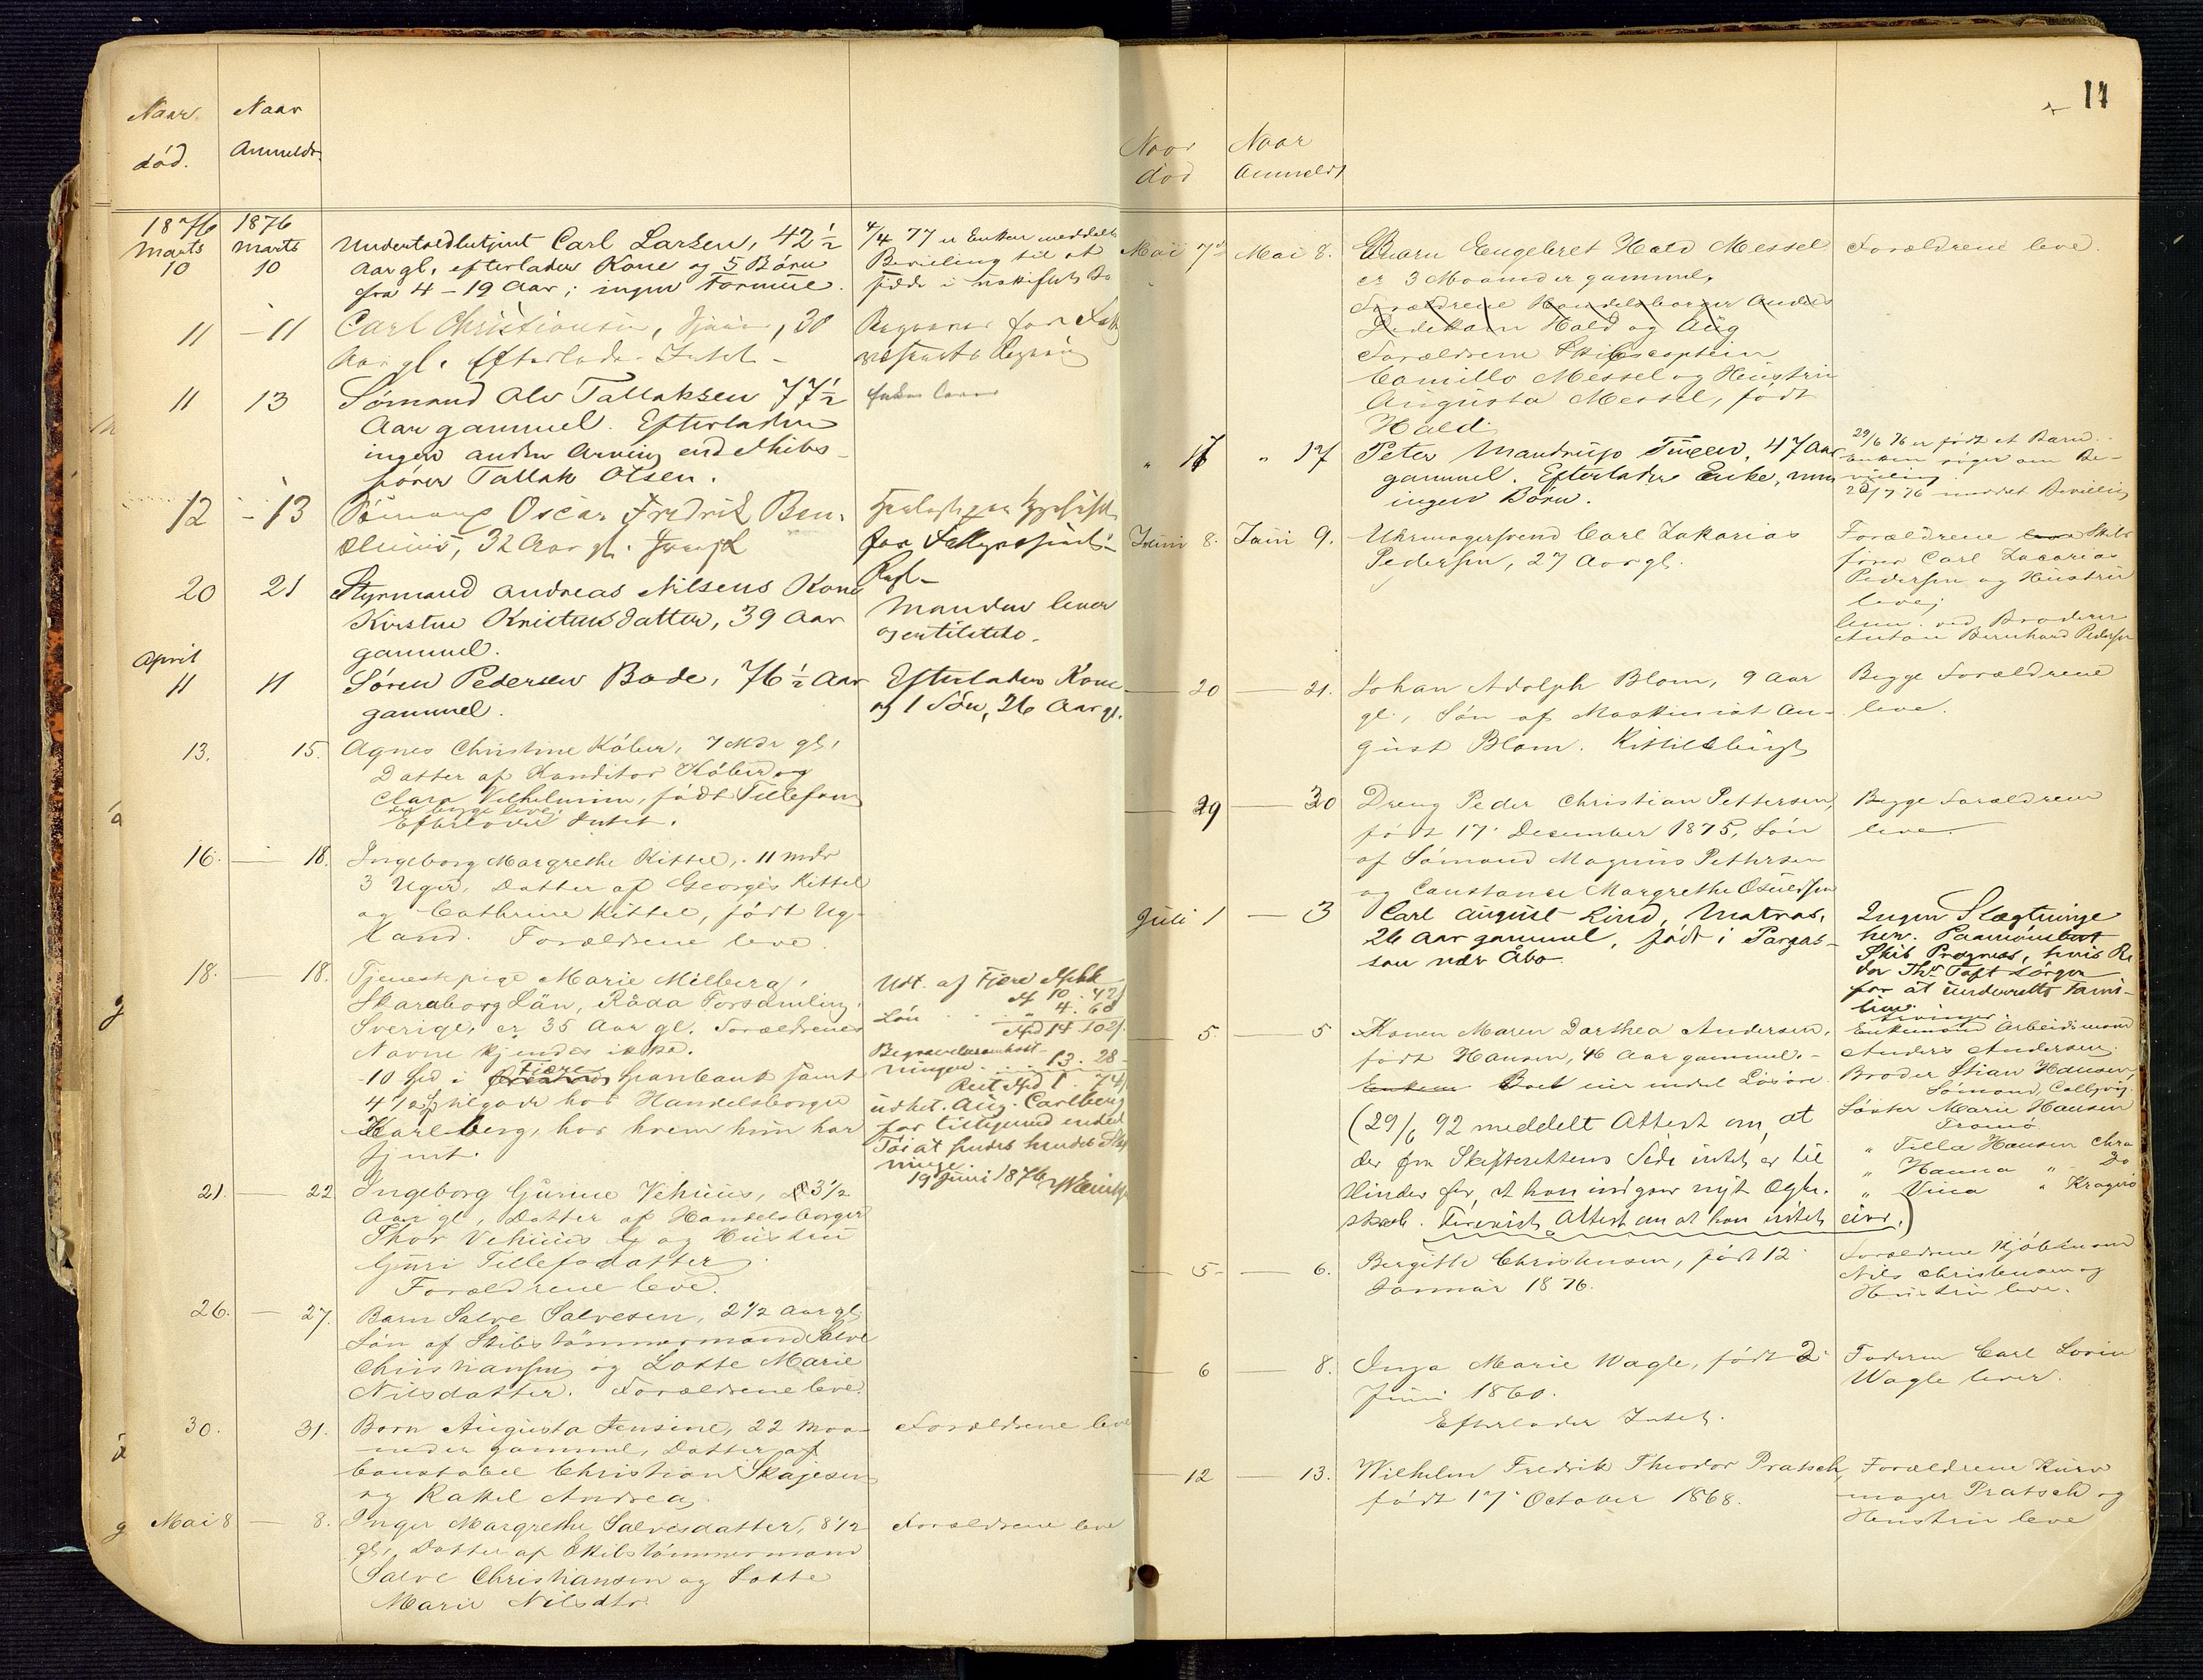 Naar Naar
död. Anmeldt
1876 1876
Marts Marts
10 10
Undertoldbetjent Carl Larsen, 42 1/2
Aar gl, efterlader Kone og 5 Børn
fra 4 - 19 Aar; ingen Formue.
4/4 77 er Enken meddelt
Bevilling til at
sidde i uskiftet Bo
11 - 11
Carl Christiansen, 30
Aar gl. Efterlader Intet -
11 13
Sömand Alv Tallaksen 77 1/2
Aar gammel. Efterlader
ingen anden Arving end Skibs-
fører Tallak Olsen.
12 - 13
Oscar Fredrik Ben-
32 Aar gl.
20 21
Styrmand Andreas Nilsens Kone
Kirstine Kristensdatter, 39 Aar
gammel.
Manden lever
April
11 11
Sören Pedersen Bode, 76 1/2 Aar
gammel.
Efterlader Kone
og 1 Sön, 26 Aar gl.
13. 15.
Agnes Christine Köber, 7 Mdr gl,
Datter af Konditor Köber og
Clara Vilhelmine, födt Tellefsen
der begge leve.
Efterlader Intet.
16. — 18.
Ingeborg Margrethe Kittel, 11 Mdr
3 Uger, Datter af Georgès Kittel
og Cathrine Kittel, födt Ug-
land. Forældrene leve.
18. — 18.
Tjenestepige Marie Milberg,
Skaraborg Län, Råda Forsamling,
Sverige, er 35 Aar gl. Forældrenes
Navne kjendes ikke.
10 Spd i Fjære Sparebank samt
4 1/2 Spd tilgode hos Handelsborger
Karlberg, hos hvem hun har
tjent.
Udt. af Fjære Spbk
Spd 10. 42
Lön . . . " 4. 60
Spd 14. 102
Begravelsesomkost-
ninger . . . 13. 28
Rest Spd 1. 74
udbet. Aug. Carlberg
for tilligemed endel
Töi at sendes hendes Slægt-
ninge.
19 Juni 1876
21. — 22
Ingeborg Gurine Vehuus, 3 1/2
Aar gl, Datter af Handelsborger
Thor Vehuus og Hustru
Guri Tellefsdatter
Forældrene leve.
26. — 27.
Barn Salve Salvesen, 2 1/2 Aar gl,
Sön af Skibstömmermand Salve
Christiansen og Lotte Marie
Nilsdatter. Forældrene leve.
30. 31.
Barn Augusta Jensine, 22 Maa-
neder gammel, Datter af
Constabel Christian Skajesen
og Rakkel Andrea
Forældrene leve
Mai 8 — 8.
Inger Margrethe Salvesdatter, 8 1/2
gl, Datter af Skibstömmermand
Salve Christiansen og Lotte
Marie Nilsdtr.
Forældrene leve
11
Naar Naar
död Anmeldt
Mai 7de Mai 8.
Barn Engebret Hald Messel
er 3 Maaneder gammel.
Forældrene Handelsborger Anders
Hald og Aug
Forældrene Skibscaptein
Camillo Messel og Hustru
Augusta Messel, födt
Hald.
Forældrene leve.
" 17 " 17
Peter Mandrup Tuxen, 47 Aar
gammel. Efterlader Enke, men
ingen Börn.
29/6 76 er födt et Barn.
Enken söger om Be-
villing.
20/7 76 meddelt Bevilling
Juni 8. Juni 9.
Uhrmagersvend Carl Zakarias
Pedersen, 27 Aar gl.
Forældrene Skibs-
förer Carl Zacarias
Pedersen og Hustru
leve;
ved Broderen
Anton Bernhard Pedersen
— 20 — 21.
Johan Adolph Blom, 9 Aar
gl, Sön af Maskinist Au-
gust Blom. Kittelsbugt
Begge Forældrene
leve.
— 29 — 30
Dreng Peder Christian Pettersen,
födt 17. December 1875, Sön
af Sömand Magnus Pettersen
og Constance Margrethe Osuldsen
Begge Forældrene
leve.
Juli 1 — 3
Carl August Lind, Matros,
26 Aar gammel, födt i Pargas-
sou nær Åbo
Ingen Slægtninge
her. Paamönstret
Skib Prognos, hvis Re-
der Ths Toft sörger
for at underrette Fami-
lien.
5 — 5
Konen Maren Dorthea Andersen,
födt Hansen, 46 Aar gammel. -
Enken Boet eier endel Lösöre.
Arvinger:
Enkemand Arbeidsmand
Anders Andersen.
Broder Stian Hansen,
Sömand, Colbjvig.
Söster Marie Hansen
Tromö
" Tilla Hansen Chra
" Hanna " Do
" Vina " Kragerö
(29/6 92 meddelt Attest om, at
der fra Skifterettens Side intet er til
Hinder for, at han indgaar nyt Ægte-
skab. Forevist Attest om at han intet eier.)
— 5 — 6.
Bergitte Christensen, födt 12.
Januar 1876.
Forældrene Kjöbmand
Nils Christensen og
Hustru leve.
— 6 — 8.
Inga Marie Wagle, födt 2.
Juni 1860.
Efterlader Intet.
Faderen Carl Lorin
Wagle lever.
— 12 — 13.
Wilhelm Fredrik Theodor Pratsch,
födt 17. October 1868.
Forældrene Kurv-
mager Pratsch og
Hustru leve